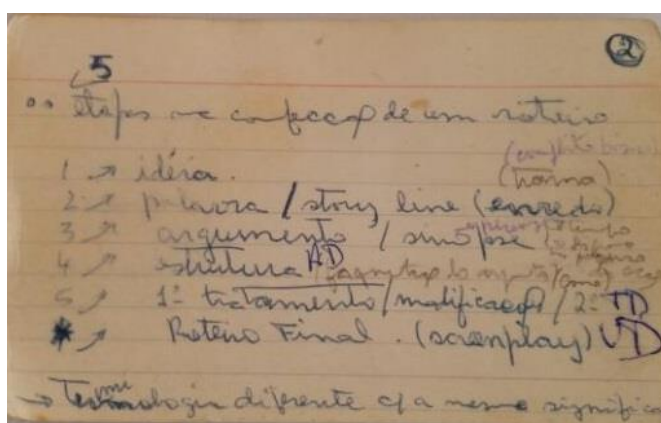 2
5
etapas na confecção de um roteiro
1 → idéia. (conflito básico)
(trama)
2 → palavra / story line (enredo)
3 → argumento / sinopse
4 → estrutura
5 → 1º tratamento / modificações / 2º TD
* → Roteiro Final. (screenplay)
→ Terminologia diferente c/ a mesmo significa